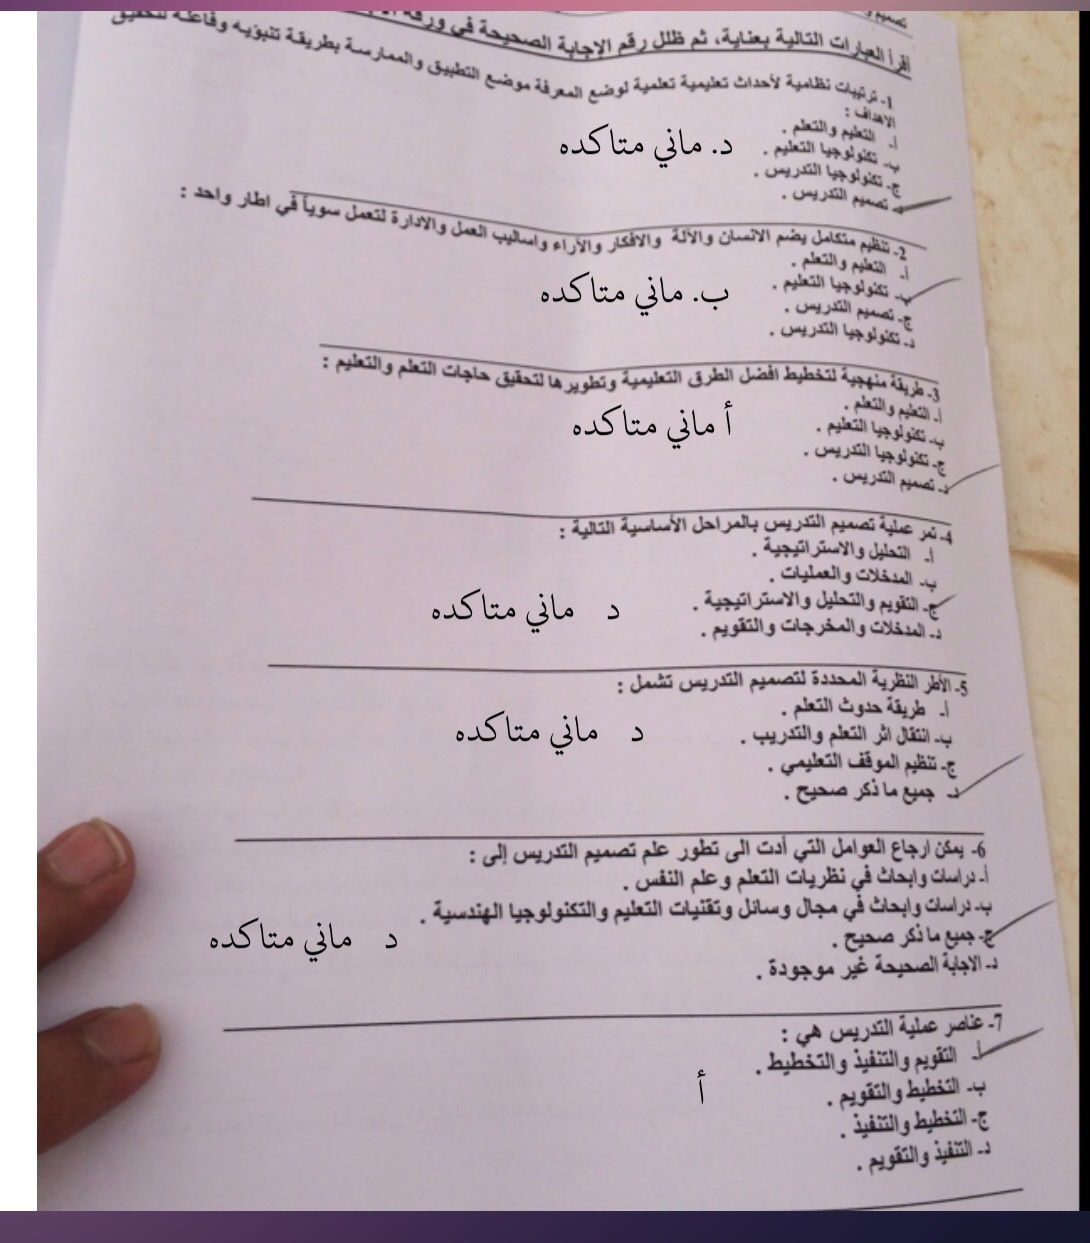 تصميم
اقرأ العبارات التالية بعناية، ثم ظلل رقم الإجابة الصحيحة في ورقة
1- ترتيبات نظامية لأحداث تعليمية تعلمية لوضع المعرفة موضع التطبيق والممارسة بطريقة تنبؤيه وفاعله لتحقيق
الاهداف :
أ- التعليم والتعلم .
ب- تكنولوجيا التعليم .
د. ماني متاكده
ج- تكنولوجيا التدريس .
د- تصميم التدريس .
2- تنظيم متكامل يضم الانسان والآلة والافكار والآراء واساليب العمل والادارة لتعمل سوياً في اطار واحد :
أ- التعليم والتعلم .
ب- تكنولوجيا التعليم .
ب. ماني متاكده
ج- تصميم التدريس .
د- تكنولوجيا التدريس .
3- طريقة منهجية لتخطيط افضل الطرق التعليمية وتطويرها لتحقيق حاجات التعلم والتعليم :
أ- التعليم والتعلم .
ب- تكنولوجيا التعليم .
أ ماني متاكده
ج- تكنولوجيا التدريس .
د- تصميم التدريس .
4- تمر عملية تصميم التدريس بالمراحل الأساسية التالية :
أ- التحليل والاستراتيجية .
ب- المدخلات والعمليات .
ج- التقويم والتحليل والاستراتيجية .
د ماني متاكده
د- المدخلات والمخرجات والتقويم .
5- الأطر النظرية المحددة لتصميم التدريس تشمل :
أ- طريقة حدوث التعلم .
ب- انتقال اثر التعلم والتدريب .
د ماني متاكده
ج- تنظيم الموقف التعليمي .
د- جميع ما ذكر صحيح .
6- يمكن ارجاع العوامل التي أدت الى تطور علم تصميم التدريس إلى :
أ- دراسات وابحاث في نظريات التعلم وعلم النفس .
ب- دراسات وابحاث في مجال وسائل وتقنيات التعليم والتكنولوجيا الهندسية .
ج- جميع ما ذكر صحيح .
د ماني متاكده
د- الاجابة الصحيحة غير موجودة .
7- عناصر عملية التدريس هي :
أ- التقويم والتنفيذ والتخطيط .
ب- التخطيط والتقويم .
أ
ج- التخطيط والتنفيذ .
د- التنفيذ والتقويم .